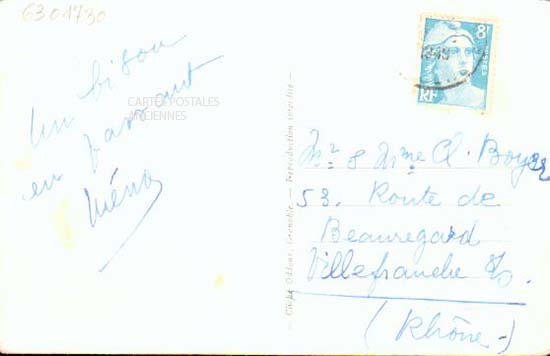 6301730
Un bisou
en passant
CARTES POSTALES
ANCIENNES
8F
POSTES
RF
1949
Mr & Mme Cl. Boyer
53. Route de
Beauregard
Villefranche s/s.
(Rhône-)
Grenoble. — Reproduction interdite —